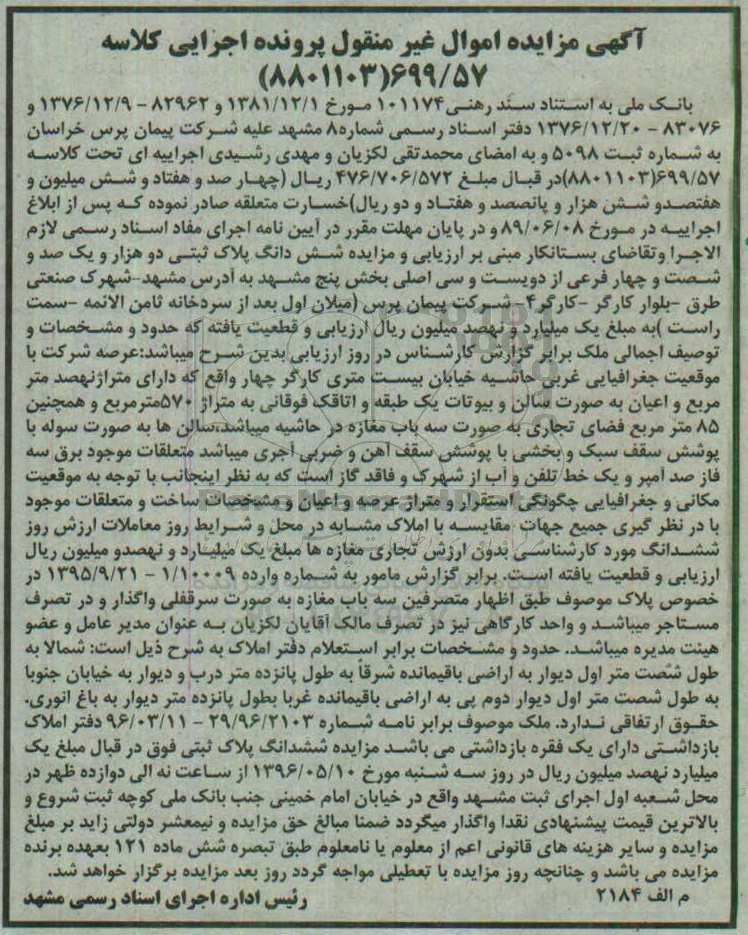 آگهی مزایده اموال غیر منقول پرونده اجرایی کلاسه
۶۹۹/۵۷(۸۸۰۱۱۰۳)
بانک ملی به استناد سند رهنی۱۰۱۱۷۴ مورخ ۱۳۸۱/۱۲/۱ و ۸۲۹۶۲ - ۱۳۷۶/۱۲/۹ و
۸۳۰۷۶ - ۱۳۷۶/۱۲/۲۰ دفتر اسناد رسمی شماره۸ مشهد علیه شرکت پیمان پرس خراسان
به شماره ثبت ۵۰۹۸ و به امضای محمدتقی لکزیان و مهدی رشیدی اجراییه ای تحت کلاسه
۶۹۹/۵۷(۸۸۰۱۱۰۳)در قبال مبلغ ۴۷۶/۷۰۶/۵۷۲ ریال (چهار صد و هفتاد و شش میلیون و
هفتصدو شش هزار و پانصد و هفتاد و دو ریال)خسارت متعلقه صادر نموده که پس از ابلاغ
اجراییه در مورخ ۸۹/۰۶/۰۸ و در پایان مهلت مقرر در آیین نامه اجرای مفاد اسناد رسمی لازم
الاجرا وتقاضای بستانکار مبنی بر ارزیابی و مزایده شش دانگ پلاک ثبتی دو هزار و یک صد و
شصت و چهار فرعی از دویست و سی اصلی بخش پنج مشهد به آدرس مشهد-شهرک صنعتی
طرق -بلوار کارگر -کارگر۴- شرکت پیمان پرس (میلان اول بعد از سردخانه ثامن الائمه -سمت
راست )به مبلغ یک میلیارد و نهصد میلیون ریال ارزیابی و قطعیت یافته که حدود و مشخصات و
توصیف اجمالی ملک برابر گزارش کارشناس در روز ارزیابی بدین شرح میباشد:عرصه شرکت با
موقعیت جغرافیایی غربی حاشیه خیابان بیست متری کارگر چهار واقع که دارای متراژنهصد متر
مربع و اعیان به صورت سالن و بیوتات یک طبقه و اتاقک فوقانی به متراژ ۵۷۰مترمربع و همچنین
۸۵ متر مربع فضای تجاری به صورت سه باب مغازه در حاشیه میباشد،سالن ها به صورت سوله با
پوشش سقف سبک و بخشی با پوشش سقف آهن و ضربی آجری میباشد متعلقات موجود برق سه
فاز صد آمپر و یک خط تلفن و آب از شهرک و فاقد گاز است که به نظر اینجانب با توجه به موقعیت
مکانی و جغرافیایی چگونگی استقرار و متراژ عرصه و اعیان و مشخصات ساخت و متعلقات موجود
با در نظر گیری جمیع جهات مقایسه با املاک مشابه در محل و شرایط روز معاملات ارزش روز
ششدانگ مورد کارشناسی بدون ارزش تجاری مغازه ها مبلغ یک میلیارد و نهصدو میلیون ریال
ارزیابی و قطعیت یافته است. برابر گزارش مامور به شماره وارده ۱/۱۰۰۰۹ - ۱۳۹۵/۹/۲۱ در
خصوص پلاک موصوف طبق اظهار متصرفین سه باب مغازه به صورت سرقفلی واگذار و در تصرف
مستاجر میباشد و واحد کارگاهی نیز در تصرف مالک آقایان لکزیان به عنوان مدیر عامل و عضو
هیئت مدیره میباشد. حدود و مشخصات برابر استعلام دفتر املاک به شرح ذیل است: شمالا به
طول شصت متر اول دیوار به اراضی باقیمانده شرقاً به طول پانزده متر درب و دیوار به خیابان جنوبا
به طول شصت متر اول دیوار دوم پی به اراضی باقیمانده غربا بطول پانزده متر دیوار به باغ انوری.
حقوق ارتفاقی ندارد. ملک موصوف برابر نامه شماره ۲۹/۹۶/۲۱۰۳ - ۹۶/۰۳/۱۱ دفتر املاک
بازداشتی دارای یک فقره بازداشتی می باشد مزایده ششدانگ پلاک ثبتی فوق در قبال مبلغ یک
میلیارد نهصد میلیون ریال در روز سه شنبه مورخ ۱۳۹۶/۰۵/۱۰ از ساعت نه الی دوازده ظهر در
محل شعبه اول اجرای ثبت مشهد واقع در خیابان امام خمینی جنب بانک ملی کوچه ثبت شروع و
بالاترین قیمت پیشنهادی نقدا واگذار میگردد ضمنا مبالغ حق مزایده و نیمعشر دولتی زاید بر مبلغ
مزایده و سایر هزینه های قانونی اعم از معلوم یا نامعلوم طبق تبصره شش ماده ۱۲۱ بعهده برنده
مزایده می باشد و چنانچه روز مزایده با تعطیلی مواجه گردد روز بعد مزایده برگزار خواهد شد.
م الف ۲۱۸۴ رئیس اداره اجرای اسناد رسمی مشهد